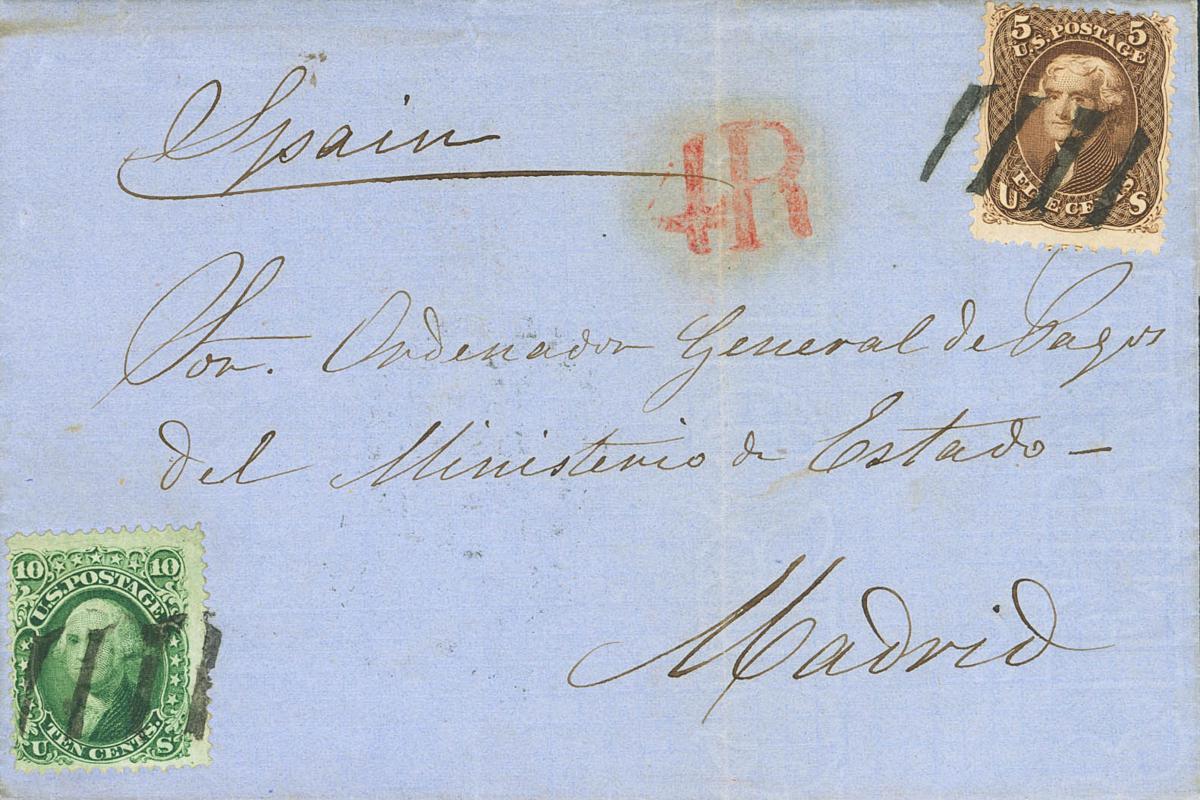 Spain
4R
5 5
U.S. POSTAGE
FIVE CENTS
U S
Sor. Ordenador General de Pagos
del Ministerio de Estado —
Madrid
10 10
U.S. POSTAGE
TEN CENTS.
U S